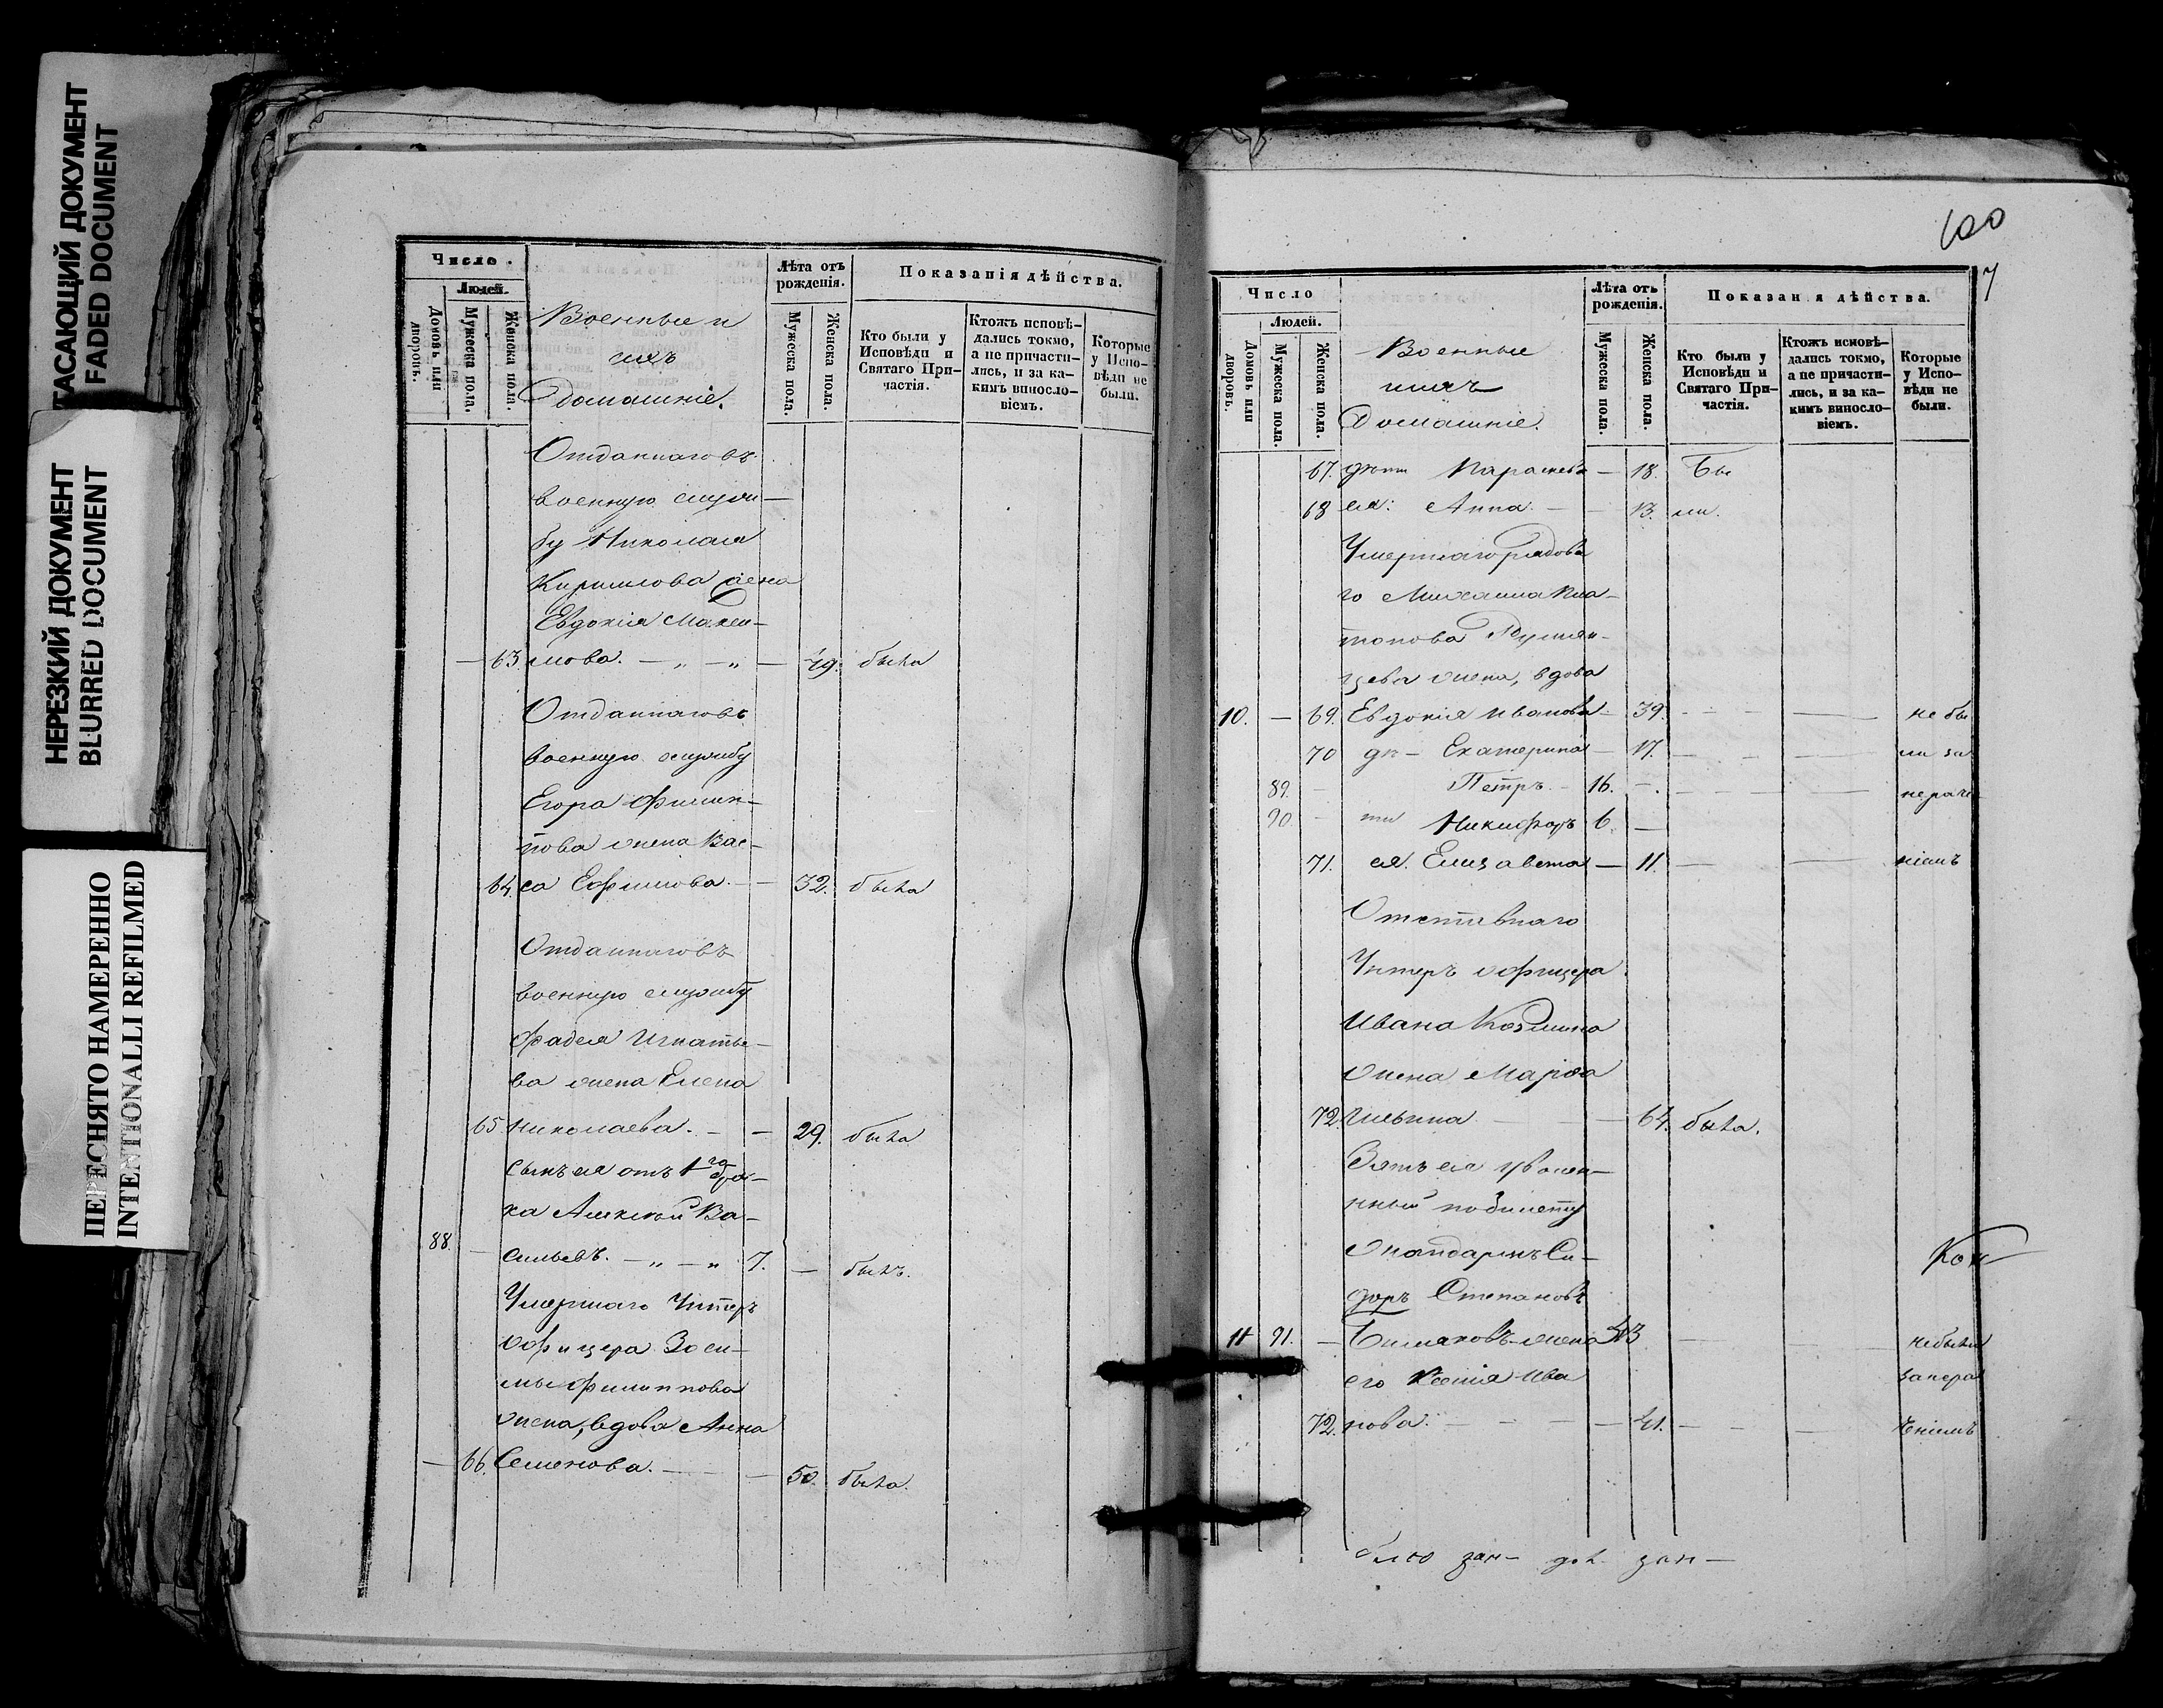 ТАСАЮЩИЙ ДОКУМЕНТ
FADED DOCUMENT
НЕРЕЗКИЙ ДОКУМЕНТ
BLURRED DOCUMENT
ПЕРЕСНЯТО НАМЕРЕННО
INTENTIONALLI REFILMED
Число.
Людей.
Домовъ или дворовъ.
Мужеска пола.
Женска пола.
Военные и
ихъ
Домашніе.
Лѣта отъ рожденія.
Мужеска пола.
Женска пола.
Показанія дѣйства.
Кто были у Исповѣди и Святаго Причастія.
Ктожъ исповѣ-
дались токмо,
а не причасти-
лись, и за ка-
кимъ виносло-
віемъ.
Которые
у Испо-
вѣди не
были.
Отданнаго въ
военную служ—
бу Николая
Кирилова жена
Евдокія Макси—
63. мова. — „ — „ — 49. была
Отданнаго въ
военную службу
Егора Филип—
пова жена Вас—
64. са Ефимова. — 32. была
Отданнаго въ
военную службу
Фадея Игнатье—
ва жена Елена
65 Николаева. — — 29. была
сынъ ея отъ 1го бра—
ка Алексѣй Ва—
88. — сильевъ. — „ — „ 7. — былъ.
Умершаго Унтеръ
Офицера Зоси—
мы Филиппова
жена, вдова Анна
— 66. Семенова. — — 50. была.
100
7
Число
Людей.
Домовъ или дворовъ.
Мужеска пола.
Женска пола.
Военные
ихъ
Домашніе.
Лѣта отъ рожденія.
Мужеска пола.
Женска пола.
Показан я дѣйства.
Кто были у Исповѣди и Святаго Причастія.
Ктожъ исповѣ-
дались токмо,
а не причасти-
лись, и за ка-
кимъ винносло-
віемъ.
Которые
у Испо-
вѣди не
были.
67. дѣти Параскева — 18. Бы
68 ея: Анна — 13. ли.
Умершаго рядова
го Михаила Пла—
тонова Румян—
цева жена, вдова
10. — 69. Евдокія Иванова — 39. — — не бы
70 дѣ — Екатерина — 17. — — ли за
89. — Петръ. — 16. — — нераче
90 — ти Никифоръ 6. —
71. ея. Елизавета — 11. — — ніемъ
Отставнаго
Унтеръ офицера
Ивана Козмина
жена Марѳа
72 Ильина — — 64. была.
Зять ея уволен—
ный по билету
Жандармъ Си—
доръ Степановъ
11 91. — жена 43 — — не были
его Ксенія Ива за нера
72. нова. — — 41. — — ченіемъ